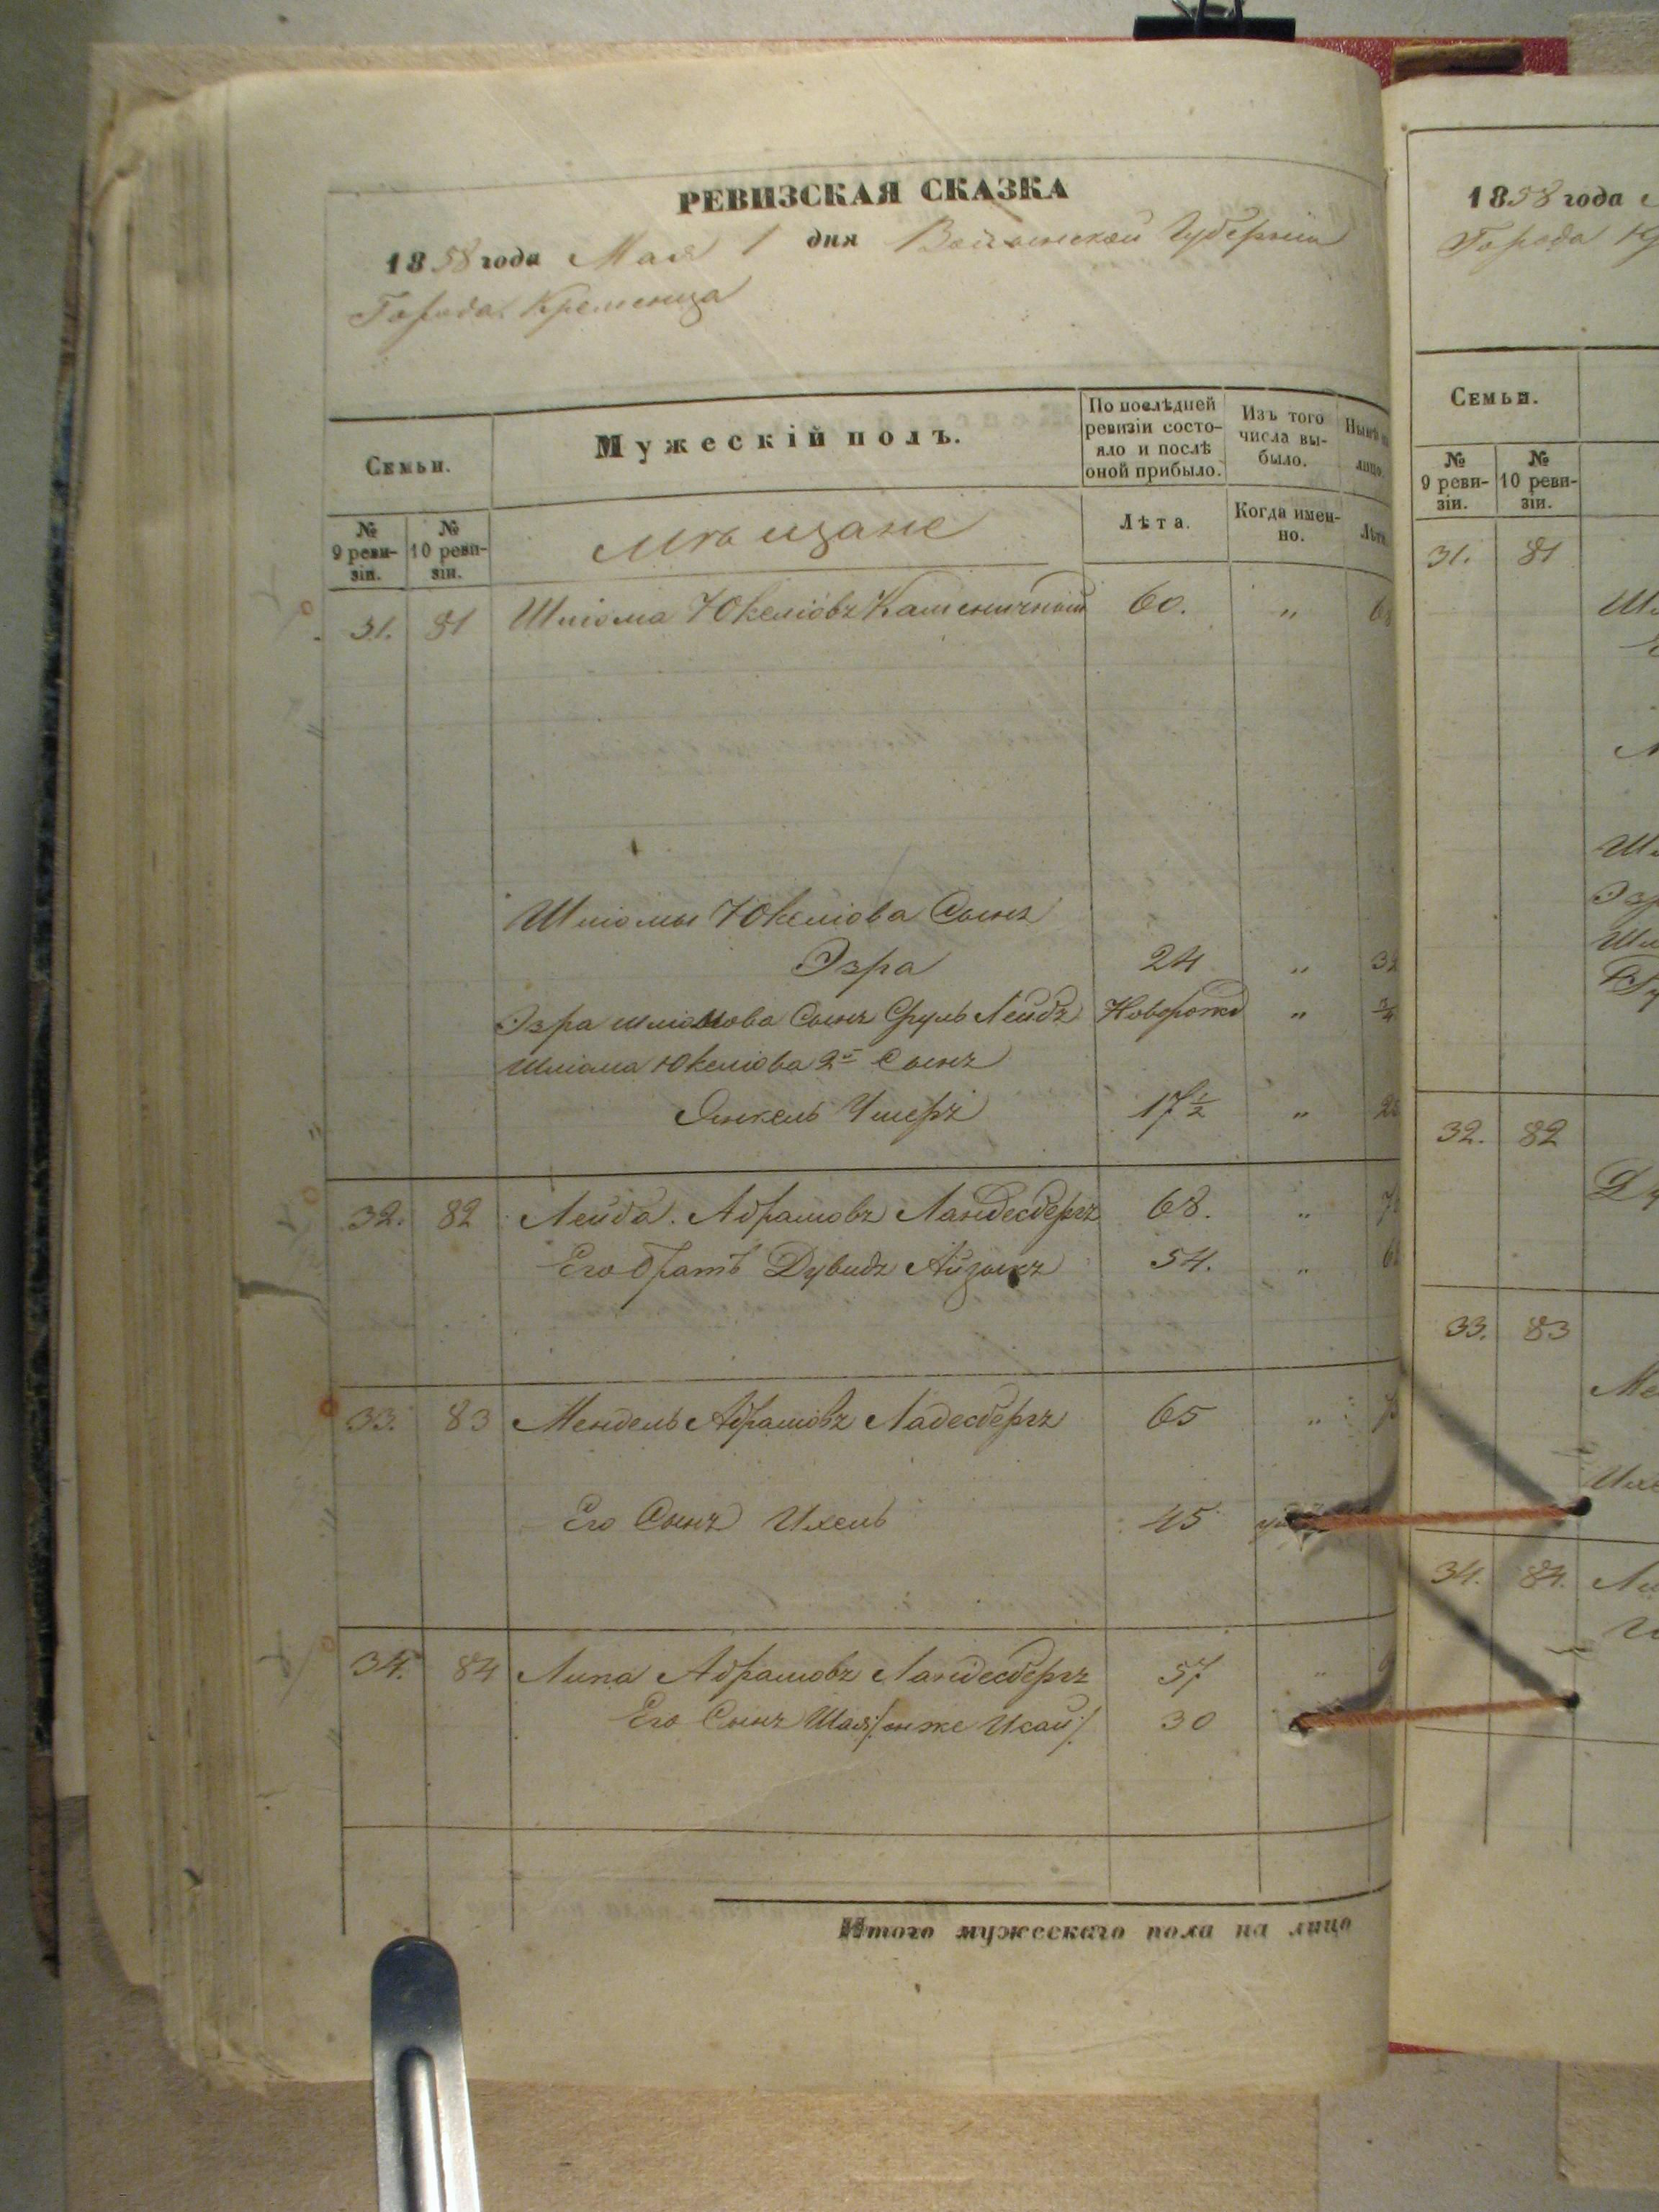 РЕВИЗСКАЯ СКАЗКА
1858 года Мая 1 дня Волынской Губерніи
Города Кременца
Семьи.
Мужескій полъ.
По послѣдней ревизіи состо-
яло и послѣ
оной прибыло.
Изъ того
числа вы-
было.
Нынѣ на
лицо.
№
9 реви-
зіи.
№
10 реви-
зіи.
Мѣщане
Лѣта.
Когда имен-
но.
Лѣта.
31. 81 Шліома Юкеліовъ 60. "
Шліомы Юкеліова Сынъ
Эзра 24 "
Эзра Шліомова Сынъ Сруль Лейбъ Новорожд "
Шліома Юкеліова 2й Сынъ
Янкель Ушеръ 17½ "
32. 82 Лейба Абрамовъ Ландесбергъ 68. "
Его братъ Дувидъ Айзыкъ 54. "
33. 83 Мендель Абрамовъ Ладесбергъ 65 "
Его Сынъ Ихель 45
34. 84 Липа Абрамовъ Ландесбергъ 57 "
Его Сынъ Шая /онъ же Исай/ 30
Итого мужескаго пола на лицо
1858 года
Города
Семьи.
№
9 реви-
зіи.
№
10 реви-
зіи.
31. 81
32. 82
33. 83
34. 84.